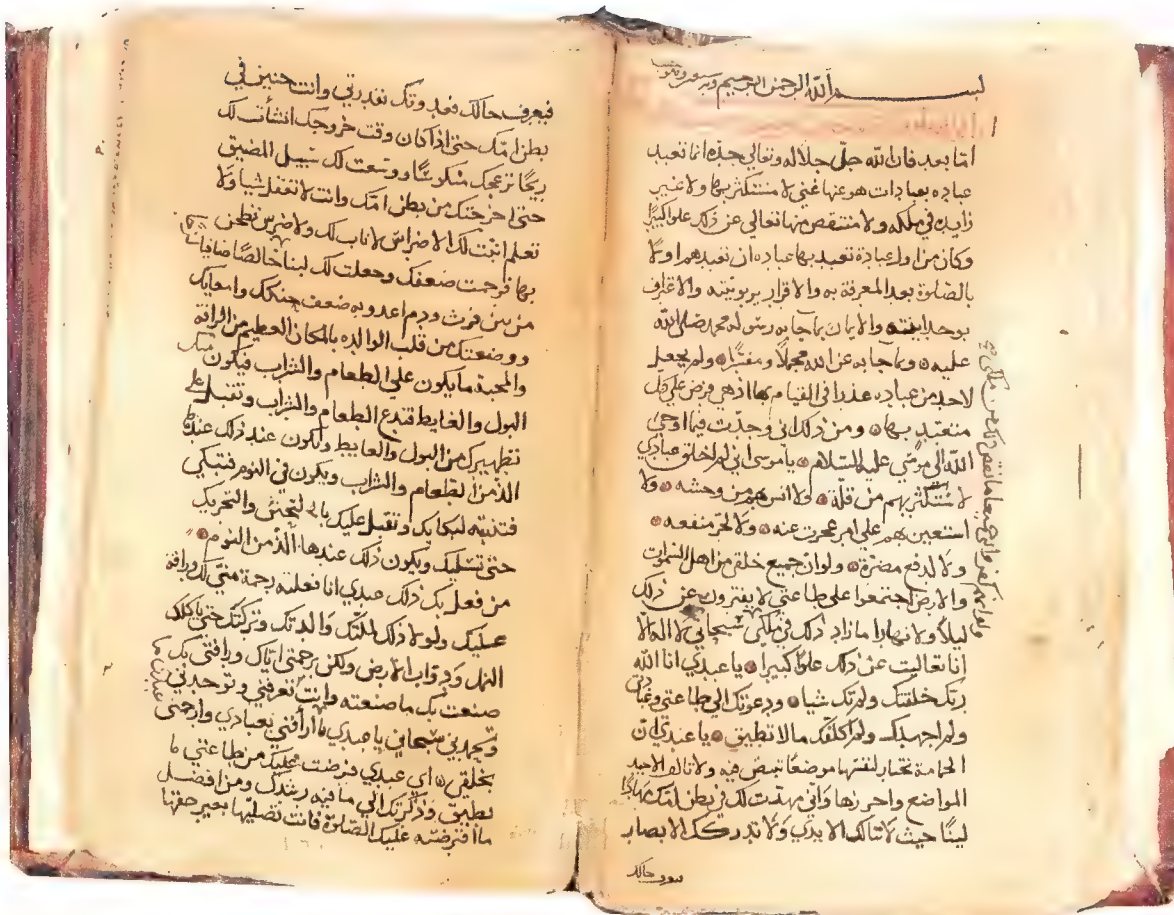 بسم الله الرحمن الرحيم وبه
اما بعد فان الله جل جلاله وتعالى جده انما تعبد
عباده بعبادات هو عنها غني لا مستكثر بها ولا غير
زايده في ملكه ولا منتقص منها تعالى عن ذلك علوا كبيرا
وكان من اول عبادة تعبد بها عباده ان تعبدهم اولا
بالصلوة بعد المعرفة به والاقرار بربوبيته والاعتراف
بوحدانيته والايمان بما جا به رسوله محمد صلى الله
عليه وبما جا به عن الله مجملا ومفسرا ولم يجعل
لاحد من عباده عذرا في القيام بها اذ هي فرض على كل
متعبد بها ومن ذلك اني وجدت فيما اوحى
الله الى موسى عليه السلام يا موسى اني لم اخلق عبادي
لاستكثر بهم من قلة ولا انس بهم من وحشه ولا
استعين بهم على امر عجزت عنه ولا لجر منفعه
ولا لدفع مضرة ولو ان جميع خلقي من اهل السموات
والارض اجتمعوا على طاعتي لا يفترون عن ذلك
ليلا ولا نهارا ما زاد ذلك في ملكي سبحاني لا اله الا
انا تعاليت عن ذلك علوا كبيرا يا عبدي انا الله
ربك خلقتك ولم تك شيا ودعوتك الى طاعتي وعبادتي
ولم اجهدك ولم اكلفك ما لا تطيق يا عبدي ان
الحمامة تختار لنفسها موضعا تبيض فيه ولا تالف الا جيد
المواضع واحرزها واني مهدت لك في بطن امك مهادا
لينا حيث لا تنالك الايدي ولا تدركك الابصار
فيعرف حالك فغدوتك بقدرتي وانت جنين في
بطن امك حتى اذا كان وقت خروجك انشأت لك
ريحا تزعجك منكوسا ووسعت لك سبيل المضيق
حتى اخرجتك من بطن امك وانت لا تعقل شيا ولا
تعلم انبت لك الاضراس لا ناب لك ولا ضرس تطحن
بها فرحمت ضعفك وجعلت لك لبنا خالصا صافيا
من بين فرث ودم اغدو به ضعف حنكك وامعايك
ووضعتك من قلب الوالده بالمكان العظيم من الرافة
والمحبة ما يكون على الطعام والشراب فيكون منك
البول والغايط فتدع الطعام والشراب وتقبل على
تطهيرك من البول والغايط ويكون عند ذلك عندها
الذ من الطعام والشراب ويكون في النوم فتبكي
فتنتبه لبكايك وتقبل عليك بالتحنن والتحريك
حتى تسليك ويكون ذلك عندها الذ من النوم
من فعل بك ذلك عبدي انا فعلته رحمة مني لك ورافة
عليك ولولا ذلك لملتك والدتك وتركتك حتى ياكلك
النمل ودواب الارض ولكن رحمتي اياك ورافتي بك
صنعت بك ما صنعته وانت تعرفني وتوحدني
وتحمدني سبحاني يا عبدي ما ارأفني بعبادي وارحمني
بخلقي اي عبدي فرضت عليك من طاعتي ما
تطيق وذكرتك الى ما فيه رشدك ومن افضل
ما افترضته عليك الصلوة فانت تصليها بغير حقها